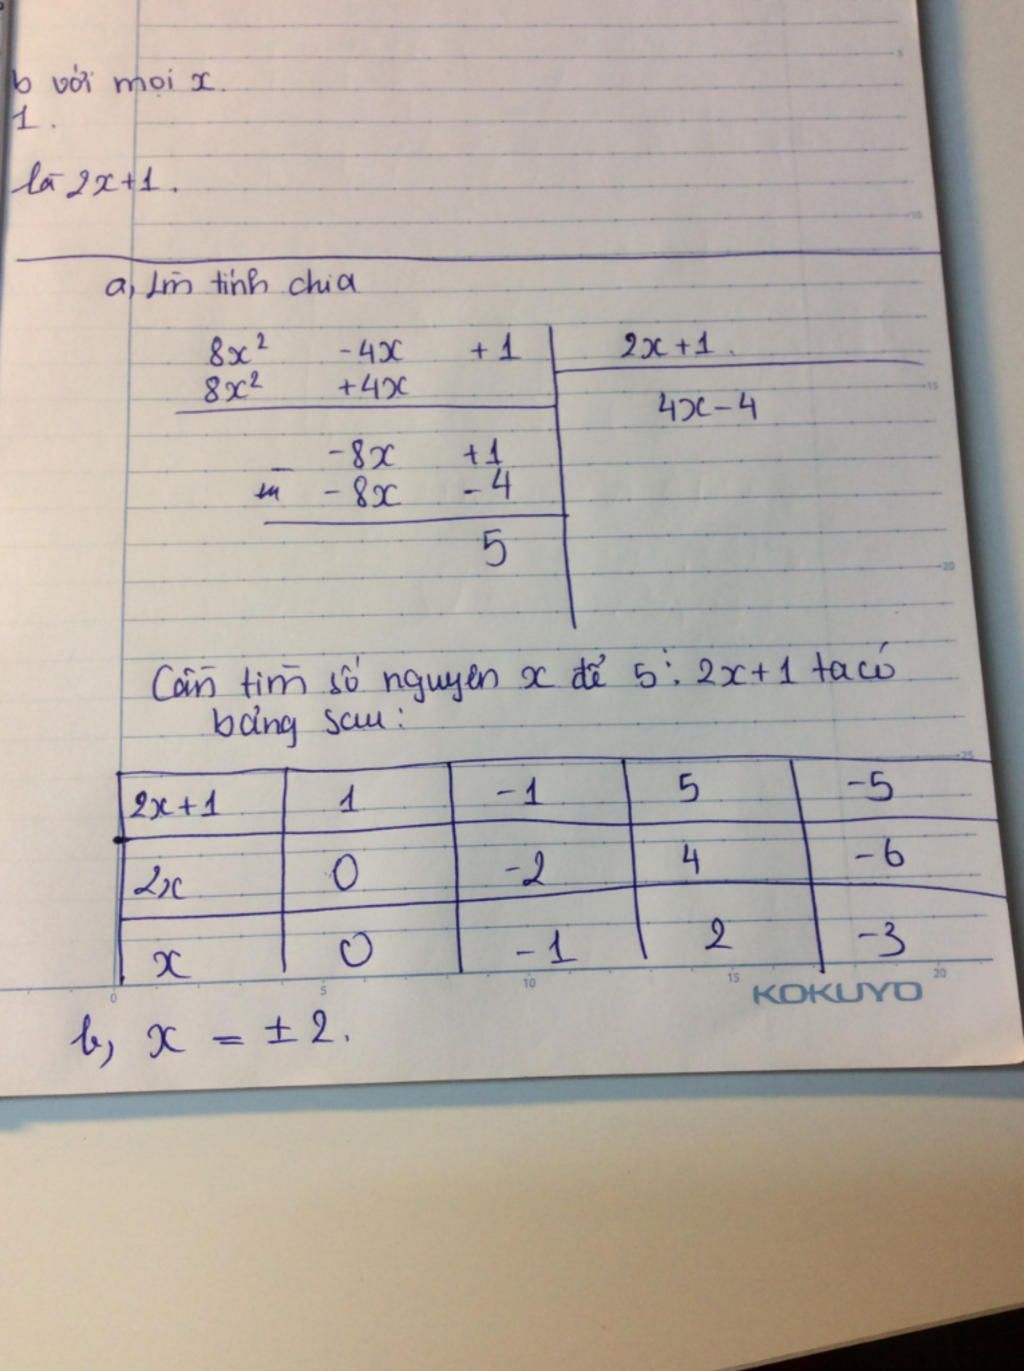 b với mọi x.
1.
là 2x+1.
a, Làm tính chia
8x² -4x +1 2x+1.
8x² +4x
4x-4
-8x +1
-
-8x -4
5
Cần tìm số nguyên x để 5 ⋮ 2x+1 ta có
bảng sau:
2x+1 1 -1 5 -5
2x 0 -2 4 -6
x 0 -1 2 -3
0 5 10 15 20
KOKUYO
b, x = ±2.